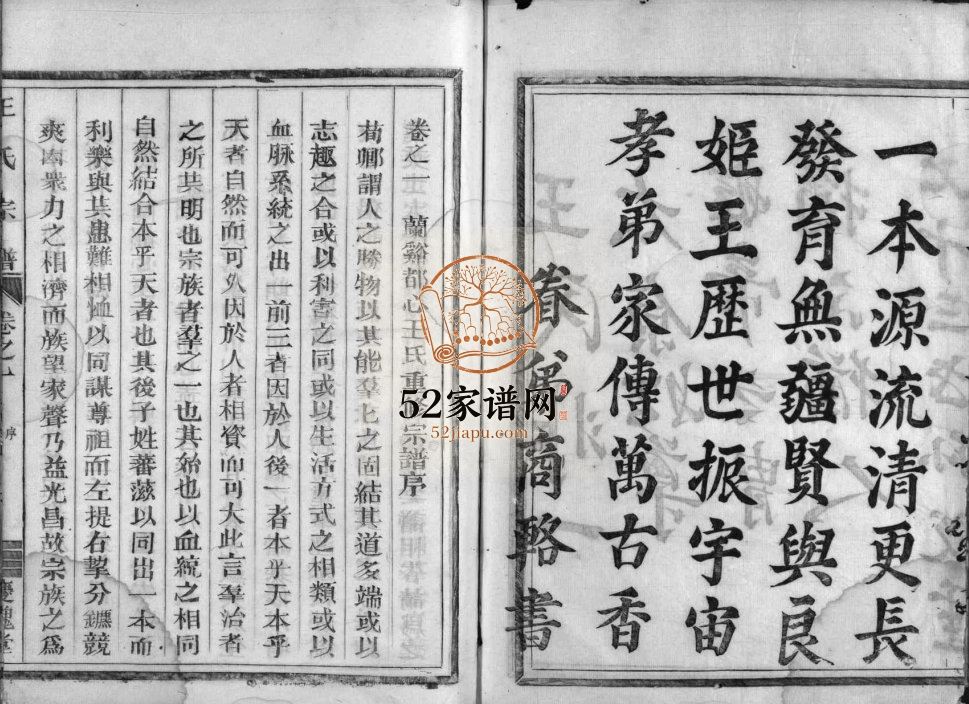 一本源流清更長
發育無疆賢與良
姬王歷世振宇宙
孝弟家傳萬古香
商輅書
52家谱网
52jiapu.com
卷之一 蘭谿都心王氏重宗譜序
荀卿謂人之勝物以其能羣也羣之固結其道多端或以
志趣之合或以利害之同或以生活方式之相類或以
血脉系統之出一前三者因於人後一者本乎天本乎
天者自然而可久因於人者相資而可大此言羣治者
之所共明也宗族者羣之一也其始也以血統之相同
自然結合本乎天者也其後子姓蕃滋以同出一本而
利樂與共患難相恤以同謀尊祖而左提右挈分鑣競
爽由衆力之相濟而族望家聲乃益光昌故宗族之爲
王氏宗譜 卷之一 序 雙槐堂